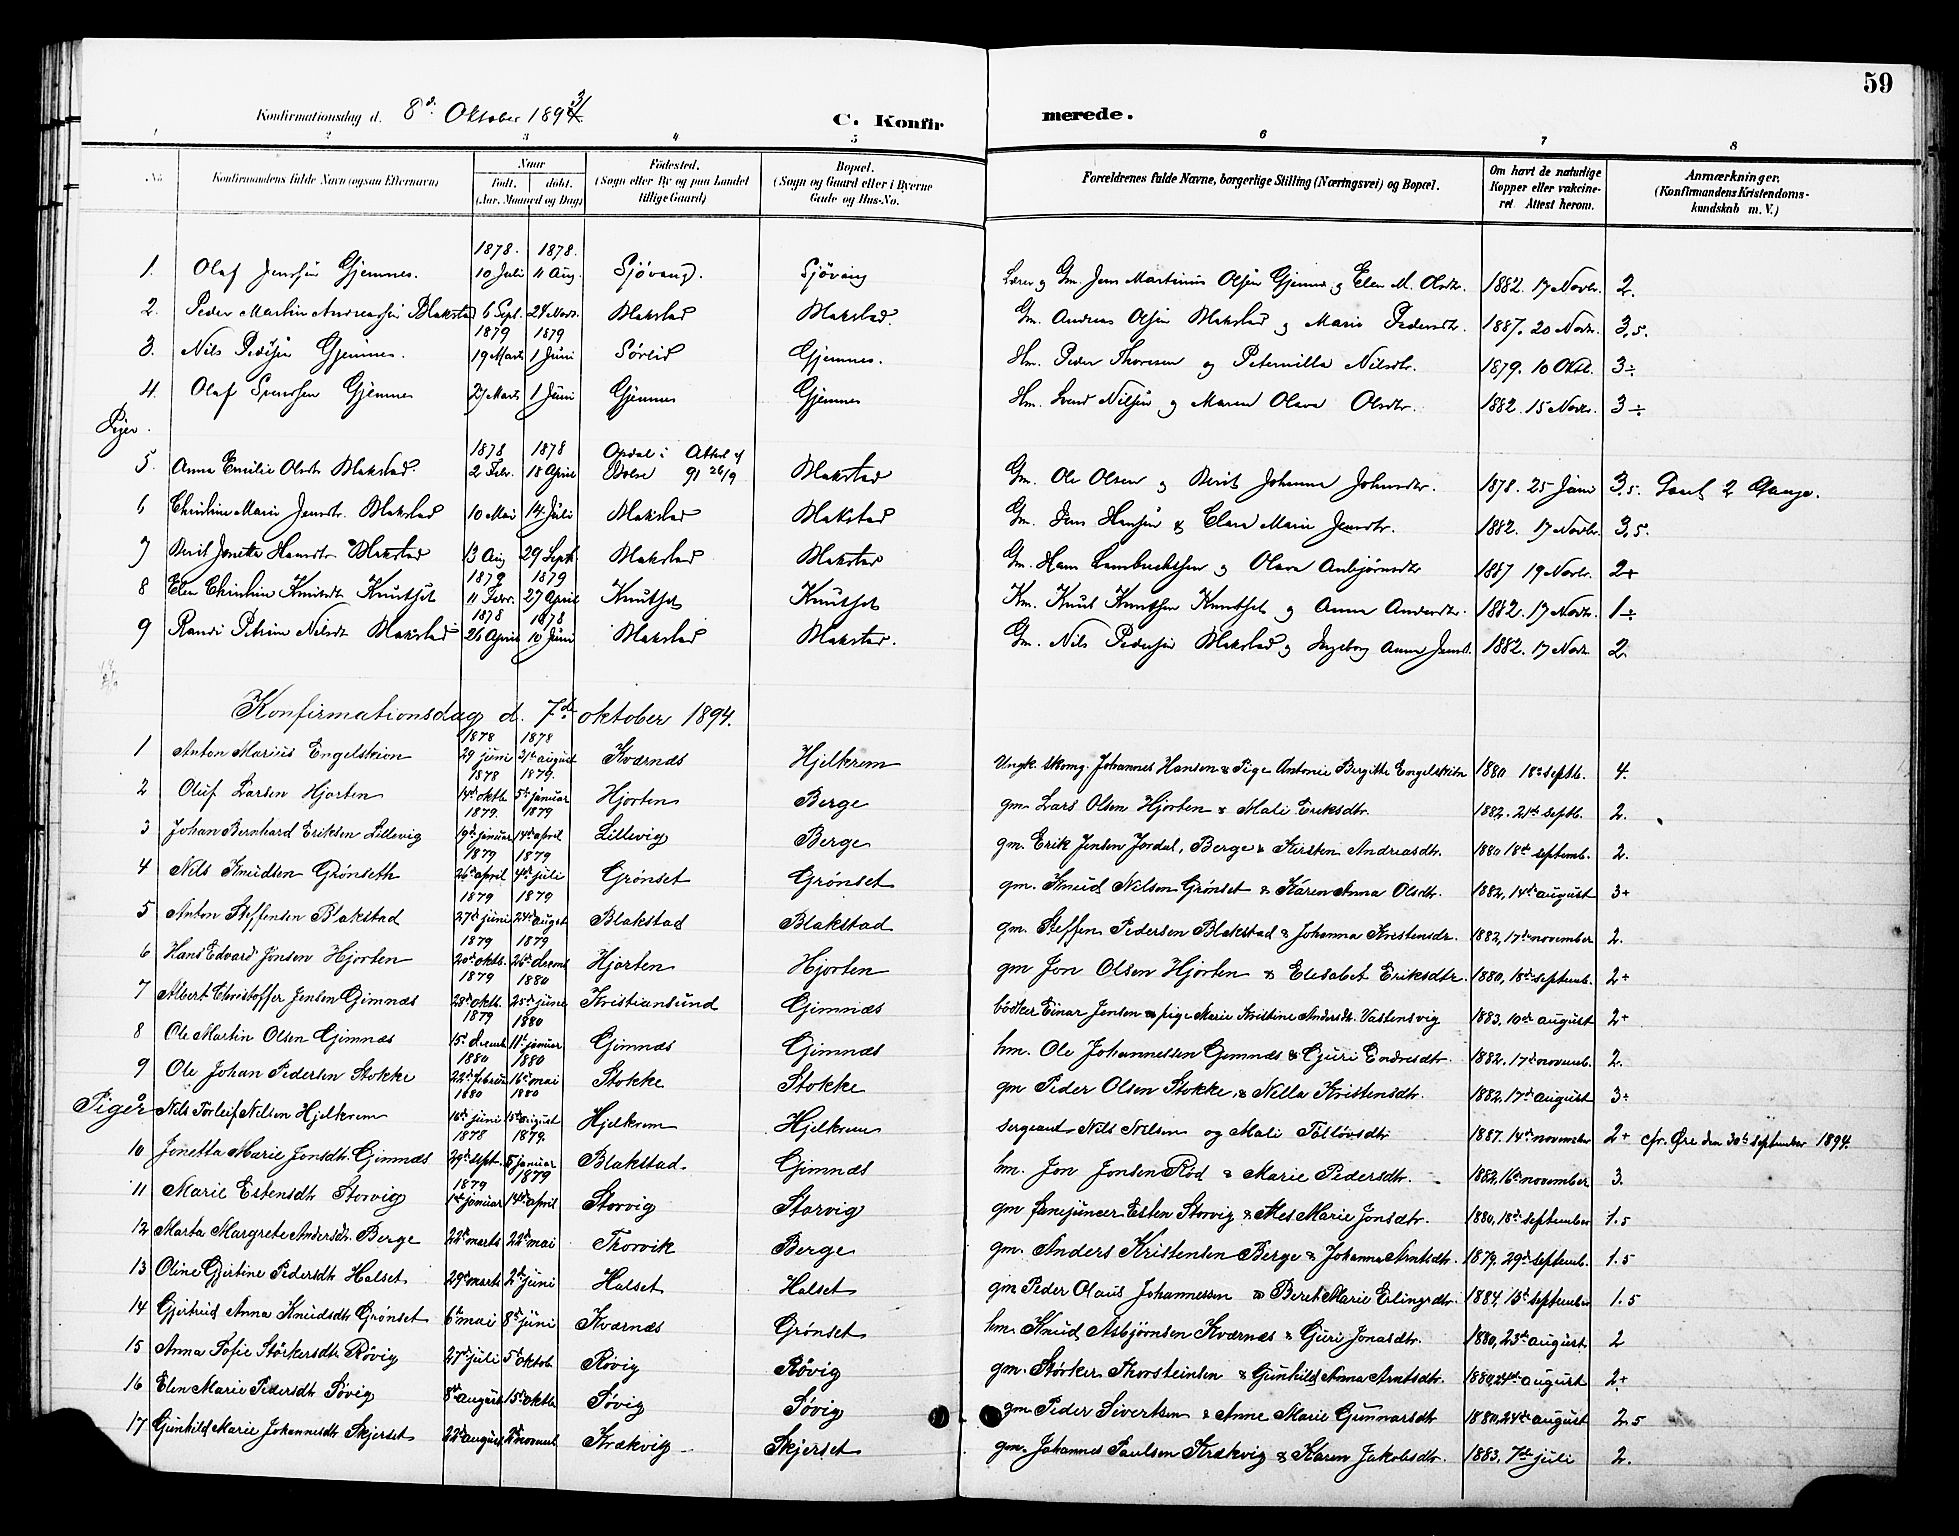 59
Konfirmationsdag d. 8de Oktober 1893
C. Konfirmerede.
1 2 3 4 5 6 7 8
No. Konfirmandens fulde Navn (ogsaa Efternavn) Naar født. døbt. (Aar. Maaned og Dag) Fødested. (Sogn eller By og paa Landet tillige Gaard) Bopæl. (Sogn og Gaard eller i Byerne Gade og Hus-No. Forældrenes fulde Navne, borgerlige Stilling (Næringsvei) og Bopæl. Om havt de naturlige Kopper eller vakcineret. Attest herom. Anmærkninger. (Konfirmandens Kristendomskundskab m. V.)
1878. 1878.
1. Olaf Jensen Gjemnes. 10 Juli 11 Aug. Sjøvang. Sjøvang Lærer og Gm. Jens Martinus Olsen Gjemnes og Elen M. Olsdtr. 1882. 17 Novbr. 2.
2. Peder Martin Andreassen Blakstad 6 Sept. 24 Novbr. Blakstad Blakstad. Gm. Andreas Olsen Blakstad og Marie Pedersdtr. 1887. 20 Novbr. 3.5.
1879 1879
3. Nils Pedersen Gjemnes. 19 Marts 1 Juni Sørlid Gjemnes. Hm. Peder Thoresen og Peternilla Nilsdtr. 1879. 10 Oktb. 3÷
4. Olaf Svendsen Gjemnes 27 Marts 1 Juni Gjemnes Gjemnes Hm. Svend Nilsen og Maren Olava Olsdtr. 1882. 15 Novbr. 3÷
Piger.
1878 1878
5. Anna Emilie Olsdtr Blakstad. 2 Febr. 18 April Opdal i Edvese Attest af 91 26/9 Blakstad Gm. Ole Olsen og Berit Johanna Johnsdtr. 1878. 25 Juni 3.5. Læst 2 Gange.
6 Christine Marie Jensdtr. Blakstad 10 Mai 14 Juli Blakstad Blakstad Gm. Jens Hansen & Elava Marie Jensdtr. 1882. 17 Novbr. 3.5.
7 Berit Jonetta Hansdtr Blakstad 13 Aug 29 Sept. Blakstad Blakstad Gm. Hans Lambrechtsen og Olava Anbjørnsdtr 1887 19 Novbr. 2+
1879 1879
8 Elen Christine Knutsdtr Knutset 11 Febr. 27 April Knutset Knutset Km. Knut Knutsen Knutset og Anna Andersdtr. 1882. 17 Novbr. 1÷
1878 1878
9 Randi Petrine Nilsdtr Blakstad 26 April 10 Juni Blakstad Blakstad. Gm. Nils Pedersen Blakstad og Ingeborg Anna Jensd. 1882. 17 Novbr. 2
Konfirmationsdag d. 7de oktober 1894.
1878 1878
1 Anton Marius Engelskion 29 juni 31te august Kværnæs Hjelkrem Ungk. skomg. Johannes Hansen & Pige Antonie Bergitte Engelskion 1880 18de septb. 4.
1878 1879.
2 Oluf Larsen Hjorten 14de oktb. 5te januar Hjorten Berge gm. Lars Olsen Hjorten & Mali Eriksdtr. 1882. 21de septb. 2.
1879. 1879
3 Johan Bernhard Eriksen Lillevig 19de januar 14de april Lillevig Berge gm. Erik Jensen Jordal, Berge & Kirsten Andreasdtr. 1880 18de septemb. 2.
1879 1879
4 Nils Knudsen Grönseth 26de april 4de juli Grönset Grönset gm. Knud Nilsen Grönset & Karen Anna Olsdtr. 1882, 14de august 3+
1879 1879
5 Anton Steffensen Blakstad 27de juni 24de august Blakstad Blakstad gm. Steffen Pedersen Blakstad & Johanna Kristensdtr. 1882, 17de november 2.
1879 1879
6 Hans Edvard Jonsen Hjorten 20de oktb. 26de decemb Hjorten Hjorten gm Jon Olsen Hjorten & Elesabet Eriksdtr. 1880, 18de septemb. 2+
1879 1880
7 Albert Christoffer Jensen Gimnæs 28de oktb. 25de june Kristiansund Gimnæs bödker Einar Jensen & pige Marie Kristine Andersdr. Vastensvig 1883. 10de august 2+
1879 1880
8 Ole Martin Olsen Gimnæs 15de decemb 11te januar Gimnæs Gimnæs hm. Ole Johannessen Gimnæs & Guri Endresdtr. 1882. 17de novemb. 2.
1880 1880
9 Ole Johan Pedersen Stokke 22de februar 16de mai Stokke Stokke gm Peder Olsen Stokke & Nella Kristensdtr. 1882, 17de august 3÷
1880 1880
Piger Nils Torleif Nilsen Hjelkrem 16de juni 15de august Hjelkrem Hjelkrem sergeant Nils Nilsen og Mali Tollövsdtr 1887. 14de november 2+ cfr. Øre den 30te september 1894.
1878 1879.
10 Jonetta Marie Jonsdtr. Gimnæs 29de sept. 5 januar Blakstad. Gimnæs hm. Jon Jonsen Röd & Marie Pedersdtr. 1882, 16de november 3.
1879 1879
11 Marie Estensdtr Storvig 1te januar 14de april Storvig Storvig gm fanejunker Esten Storvig & Mes Marie Jonsdtr. 1880, 18de september 1.5
12 Marta Margrete Andersdr. Berge 22de marts 22de mai Thorvik Berge gm. Anders Kristensen Berge & Johanna Arntsdtr. 1879. 29de septemb. 1.5
13 Oline Gjertine Pedersdtr Halset 29de marts 2de juni Halset Halset gm Peder Olaus Johannessen & Beret Marie Erlingsdtr. 1884, 15de september 1.5
14 Gjertrud Anna Knudsdtr Grönset 6te mai 8de juni Kværnæs Grönset hm. Knud Asbjørnsen Kværnæs & Guri Jonasdtr. 1880, 23de august 2
15 Anna Sofie Störkersdtr Rövig 27de juli 5te oktob. Rövig Rövig gm. Störker Thorsteinsen & Gunhild Anna Arntsdtr. 1880, 24de august 2+
16 Elen Marie Pedersdtr Søvig 8de august 15de oktb. Søvig Søvig gm Peder Sivertsen & Anne Marie Gunnarsdtr 1880, 24de august 2.5
17 Gunhild Marie Johannesdtr Skjerset 22de august 2de novemb Krækvig Skjerset gm. Johannes Paulsen Krækvig & Karen Jakobsdtr. 1883, 7de juli 2.